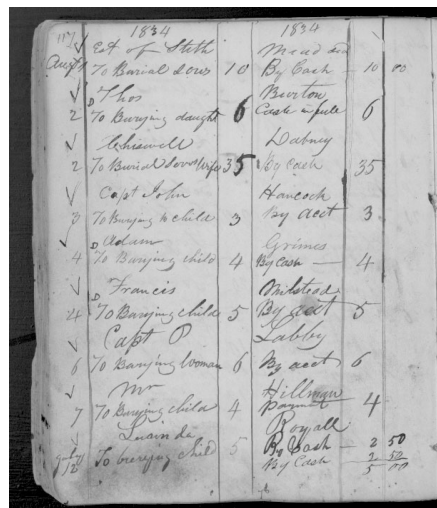 1834 1834
Est of Stith Mead
Augt 1 To Burial 10 By Cash 10 00
D Thos Burton
2 To Burying daught 6 Cash in full 6
Chiswell Dabney
2 To Burial Wife 35 By Cash 35
Capt John Hancock
3 To Burying child 3 By acct 3
D Adam Grimes
4 To Burying child 4 By Cash 4
D Francis Milstead
4 To Burying child 5 By acct 5
Capt P Labby
6 To Burying Woman 6 By acct 6
Mr Hillman
7 To Burying child 4 payment 4
Luainda Royall
July 12 To burying child 5 By Cash 2 50
By Cash 2 50
5 00